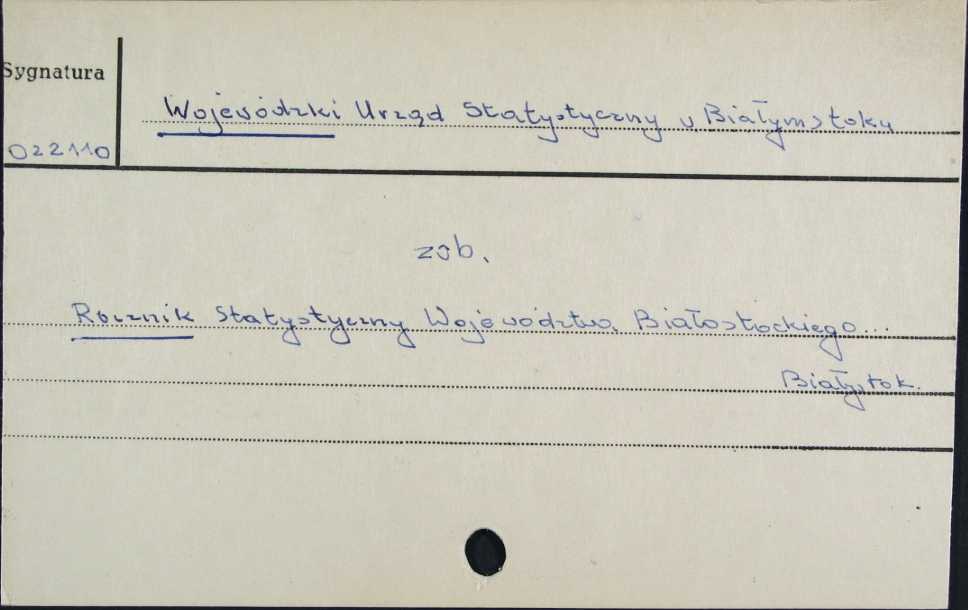 Sygnatura
Wojewódzki Urząd Statystyczny w Białymstoku
022110
zob.
Rocznik Statystyczny Województwa Białostockiego...
Białystok.